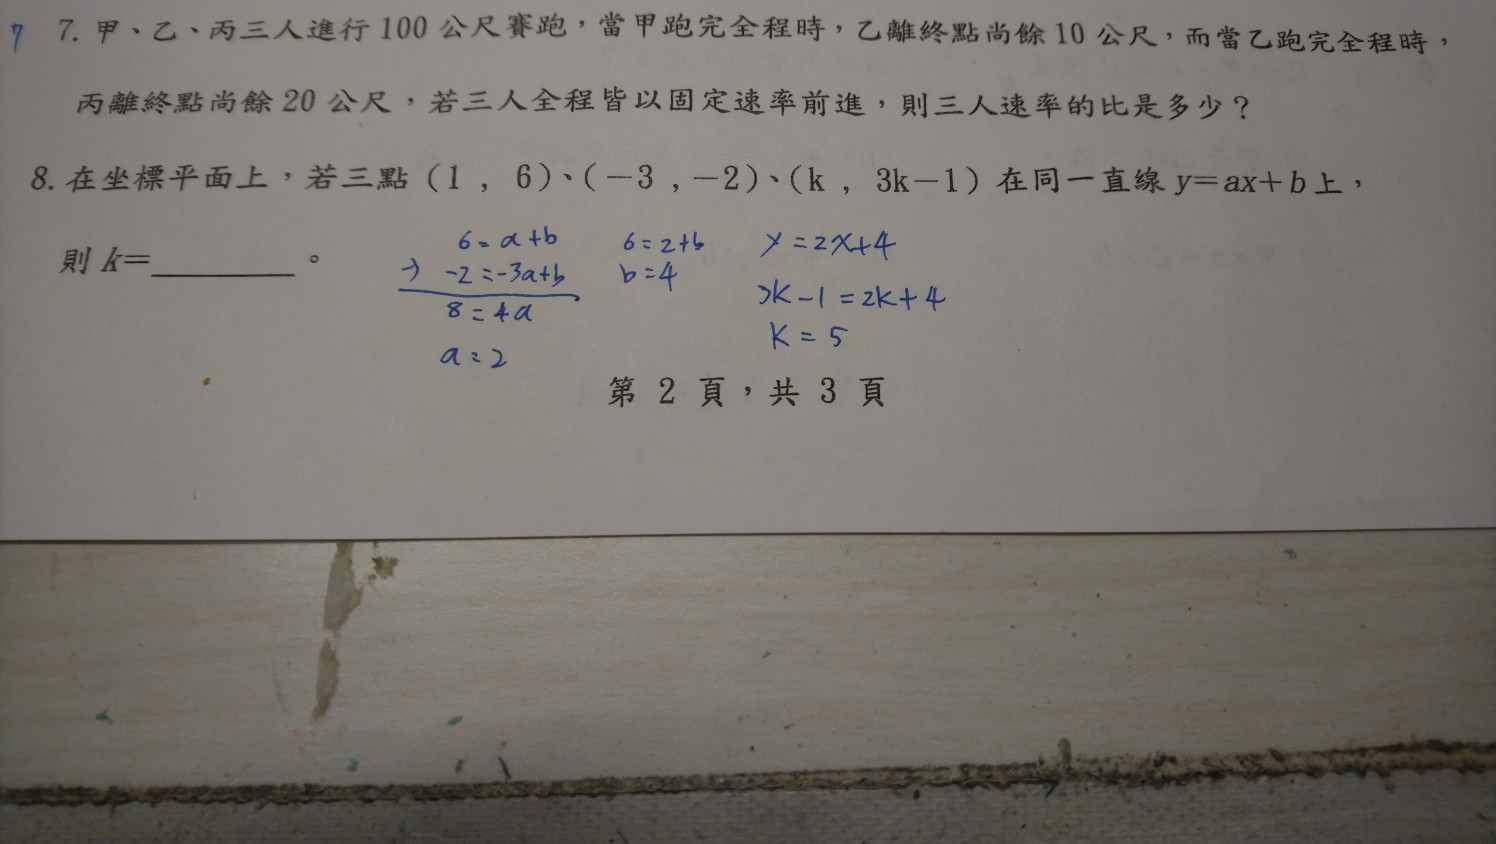 7 7. 甲、乙、丙三人進行100公尺賽跑，當甲跑完全程時，乙離終點尚餘10公尺，而當乙跑完全程時，
丙離終點尚餘20公尺，若三人全程皆以固定速率前進，則三人速率的比是多少？
8. 在坐標平面上，若三點（1 , 6）、（－3 , －2）、（k , 3k－1）在同一直線 y＝ax＋b上，
則 k＝________。
6 = a+b
→ -2 = -3a+b
8 = 4a
a = 2
6 = 2+b
b = 4
y = 2x+4
3k-1 = 2k+4
k = 5
第 2 頁，共 3 頁